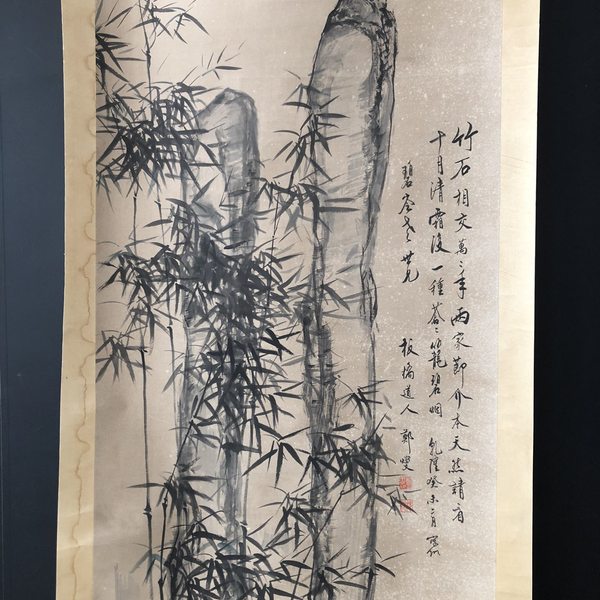 竹石相交萬〻年兩家節介本天然請看
十月清霜後一種蒼〻籠碧烟 乾隆癸未二月 寫似
碧 老 世兄 板橋道人 鄭燮